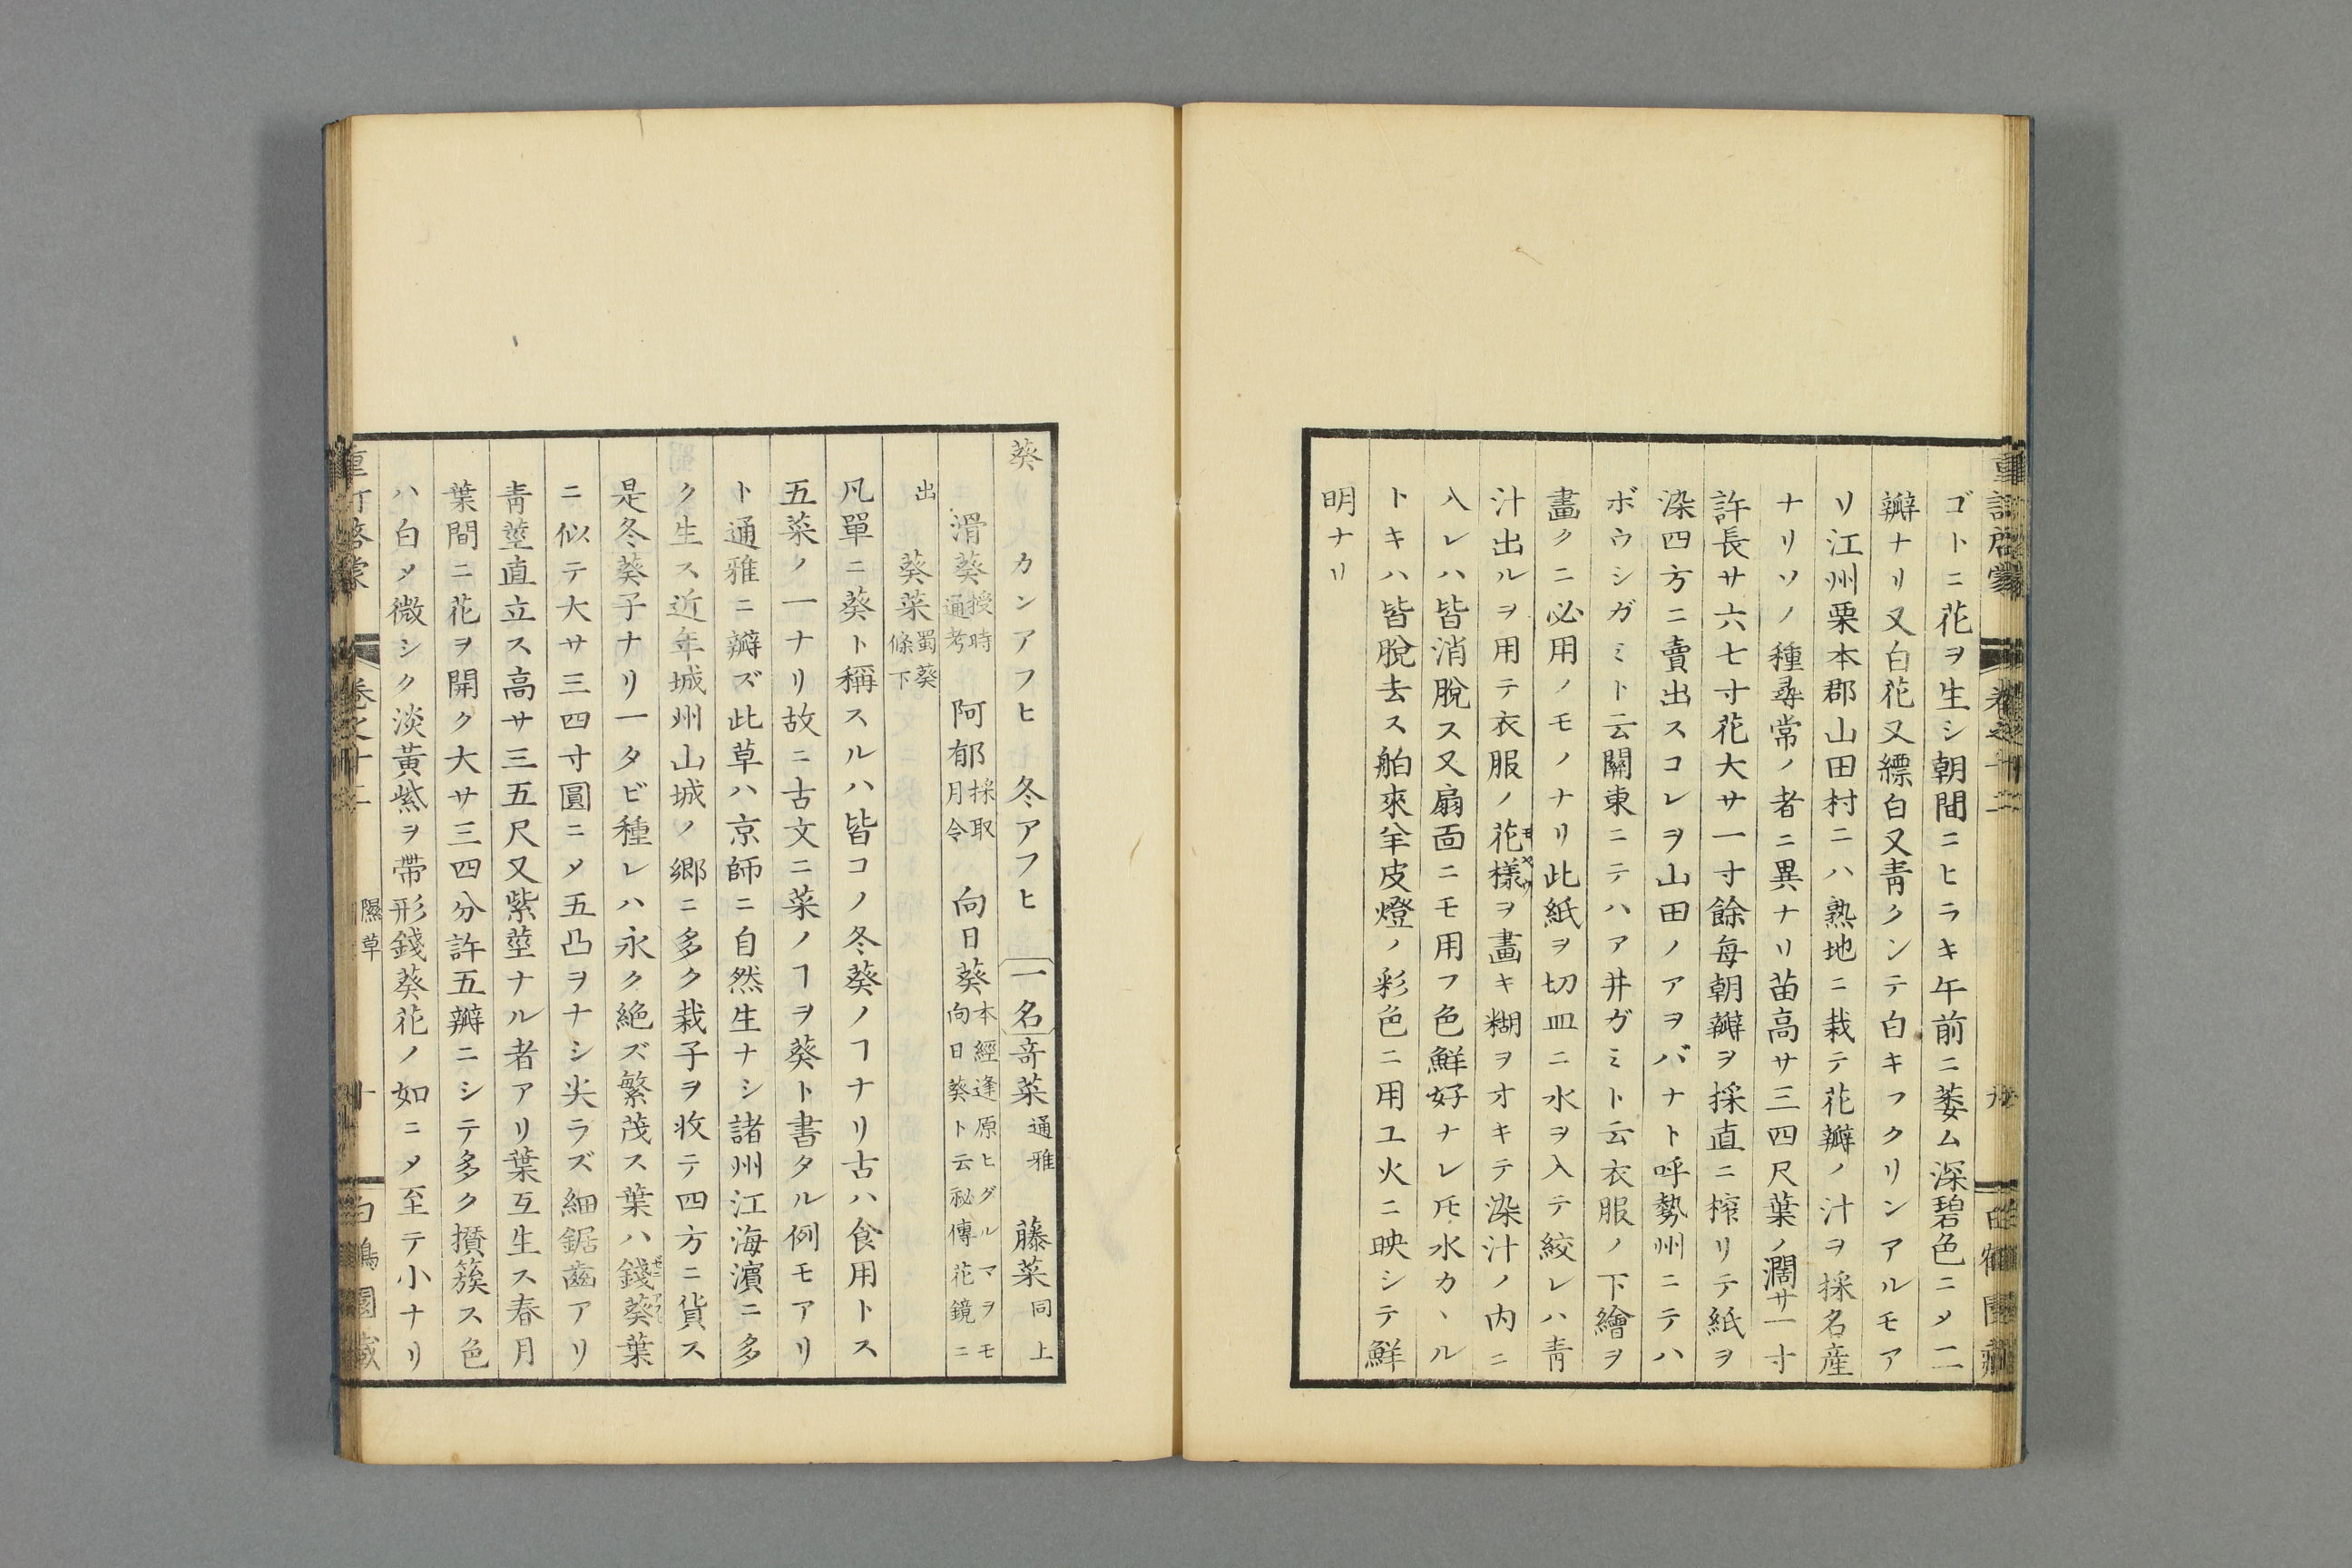 ゴトニ花ヲ生シ朝間ニヒラキ午前ニ萎ム深碧色ニメ二
瓣ナリ又白花又縹白又靑クンテ白キフクリンアルモア
リ江州栗本郡山田村ニハ熟地ニ栽テ花瓣ノ汁ヲ採名産
ナリソノ種尋常ノ者ニ異ナリ苗高サ三四尺葉ノ濶サ一寸
許長サ六七寸花大サ一寸餘毎朝瓣ヲ採直ニ搾リテ紙ヲ
染四方ニ賣出スコレヲ山田ノアヲバナト呼勢州ニテハ
ボウシガミト云關東ニテハア井ガミト云衣服ノ下繪ヲ
畫クニ必用ノモノナリ此紙ヲ切皿ニ水ヲ入テ絞レハ靑
汁出ルヲ用テ衣服ノ花様モヤウヲ畫キ糊ヲオキテ染汁ノ内ニ
入レハ皆消脱ス又扇面ニモ用フ色鮮好ナレ𪜈水カヽル
トキハ皆脱去ス舶來羊皮燈ノ彩色ニ用ユ火ニ映シテ鮮
明ナリ
葵 カンアフヒ 冬アフヒ 一名 奇菜通雅 藤菜同上
滑葵授時通考 阿郁採取月令 向日葵本經逢原ヒグルマヲモ向日葵ト云祕傳花鏡ニ
出 葵菜蜀葵條下
凡單ニ葵ト稱スルハ皆コノ冬葵ノヿナリ古ハ食用トス
五菜ノ一ナリ故ニ古文ニ菜ノヿヲ葵ト書タル例モアリ
ト通雅ニ瓣ズ此草ハ京師ニ自然生ナシ諸州江海濵ニ多
ク生ス近年城州山城ノ郷ニ多ク栽子ヲ收テ四方ニ貨ス
是冬葵子ナリ一タビ種レハ永ク絶ズ繁茂ス葉ハ錢葵ゼニアフヒ葉
ニ似テ大サ三四寸圓ニメ五凸ヲナシ尖ラズ細鋸齒アリ
靑莖直立ス高サ三五尺又紫莖ナル者アリ葉互生ス春月
葉間ニ花ヲ開ク大サ三四分許五瓣ニシテ多ク攅簇ス色
ハ白メ微シク淡黄紫ヲ帶形錢葵花ノ如ニメ至テ小ナリ
重訂啓蒙 卷之十二 隰草 十